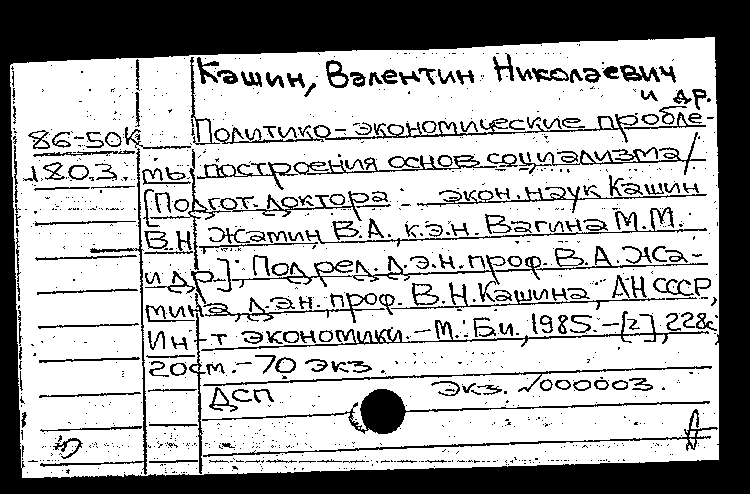 Кашин, Валентин Николаевич
и др.
86-50К Политико-экономические пробле-
1803. мы построения основ социализма/
[Подгот. доктора экон. наук Кашин
В.Н., Жамин В.А., к.э.н. Вагина М.М.
и др.]; Под ред. д.э.н. проф. В.А. Жа-
мина, д.э.н., проф. В.Н. Кашина; АН СССР,
Ин-т экономики. - М.: Б.и., 1985. - [2], 228с;
20см. - 70 экз.
ДСП Экз. √000003.